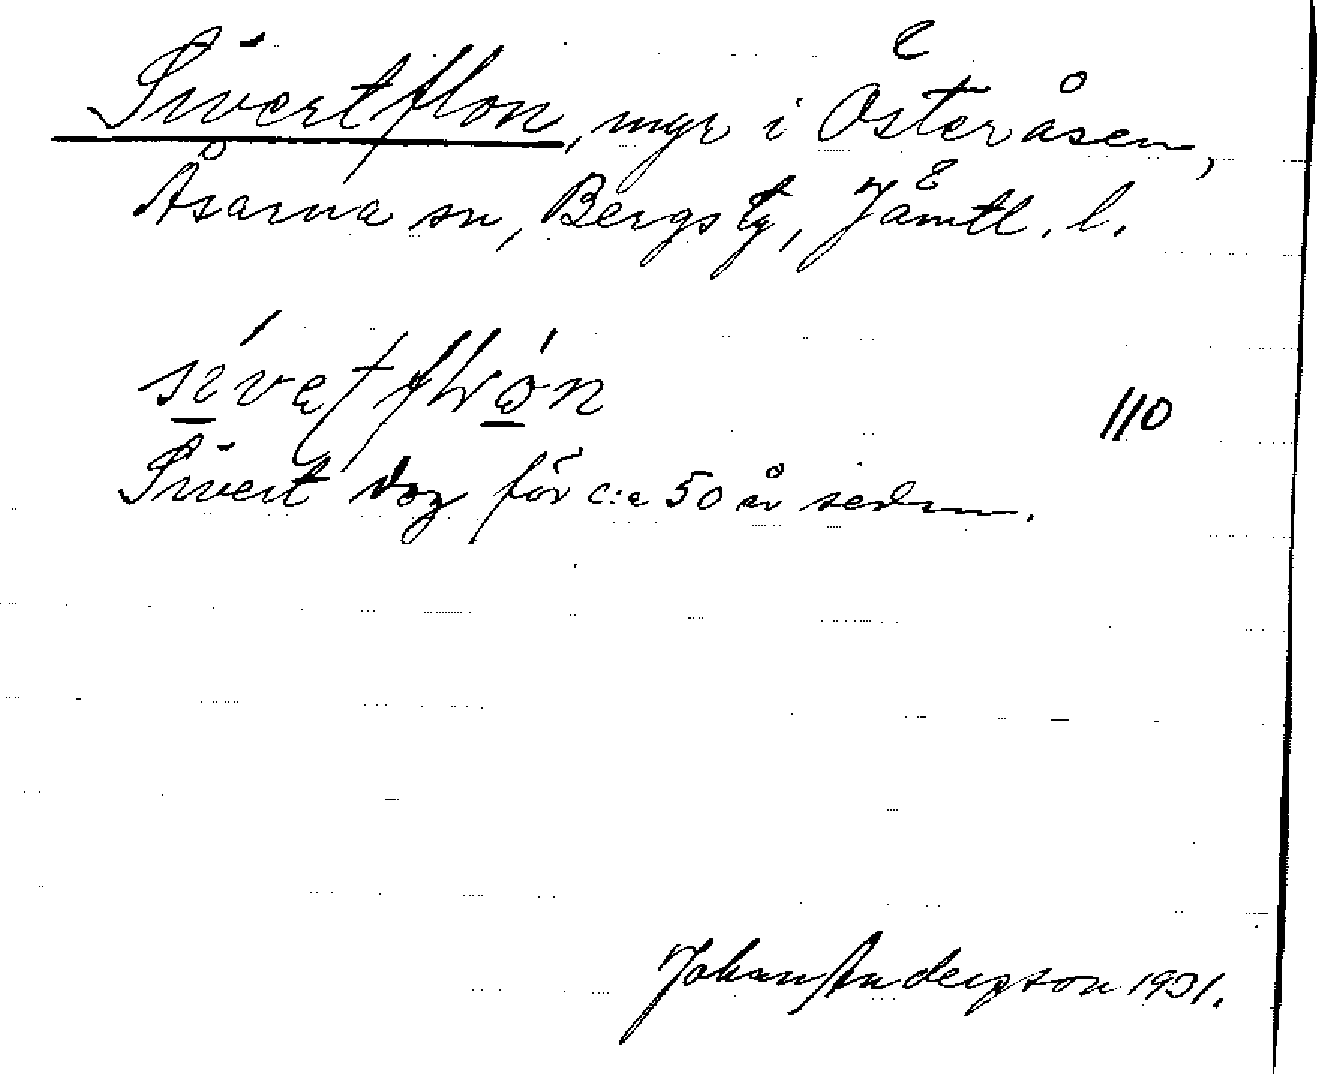 Sivertflon, myr i Österåsen,
Åsarna sn, Bergs tg, Jämtl. l.
110
Sivert dog för c:a 50 år sedan.
Johan Anderson 1931.